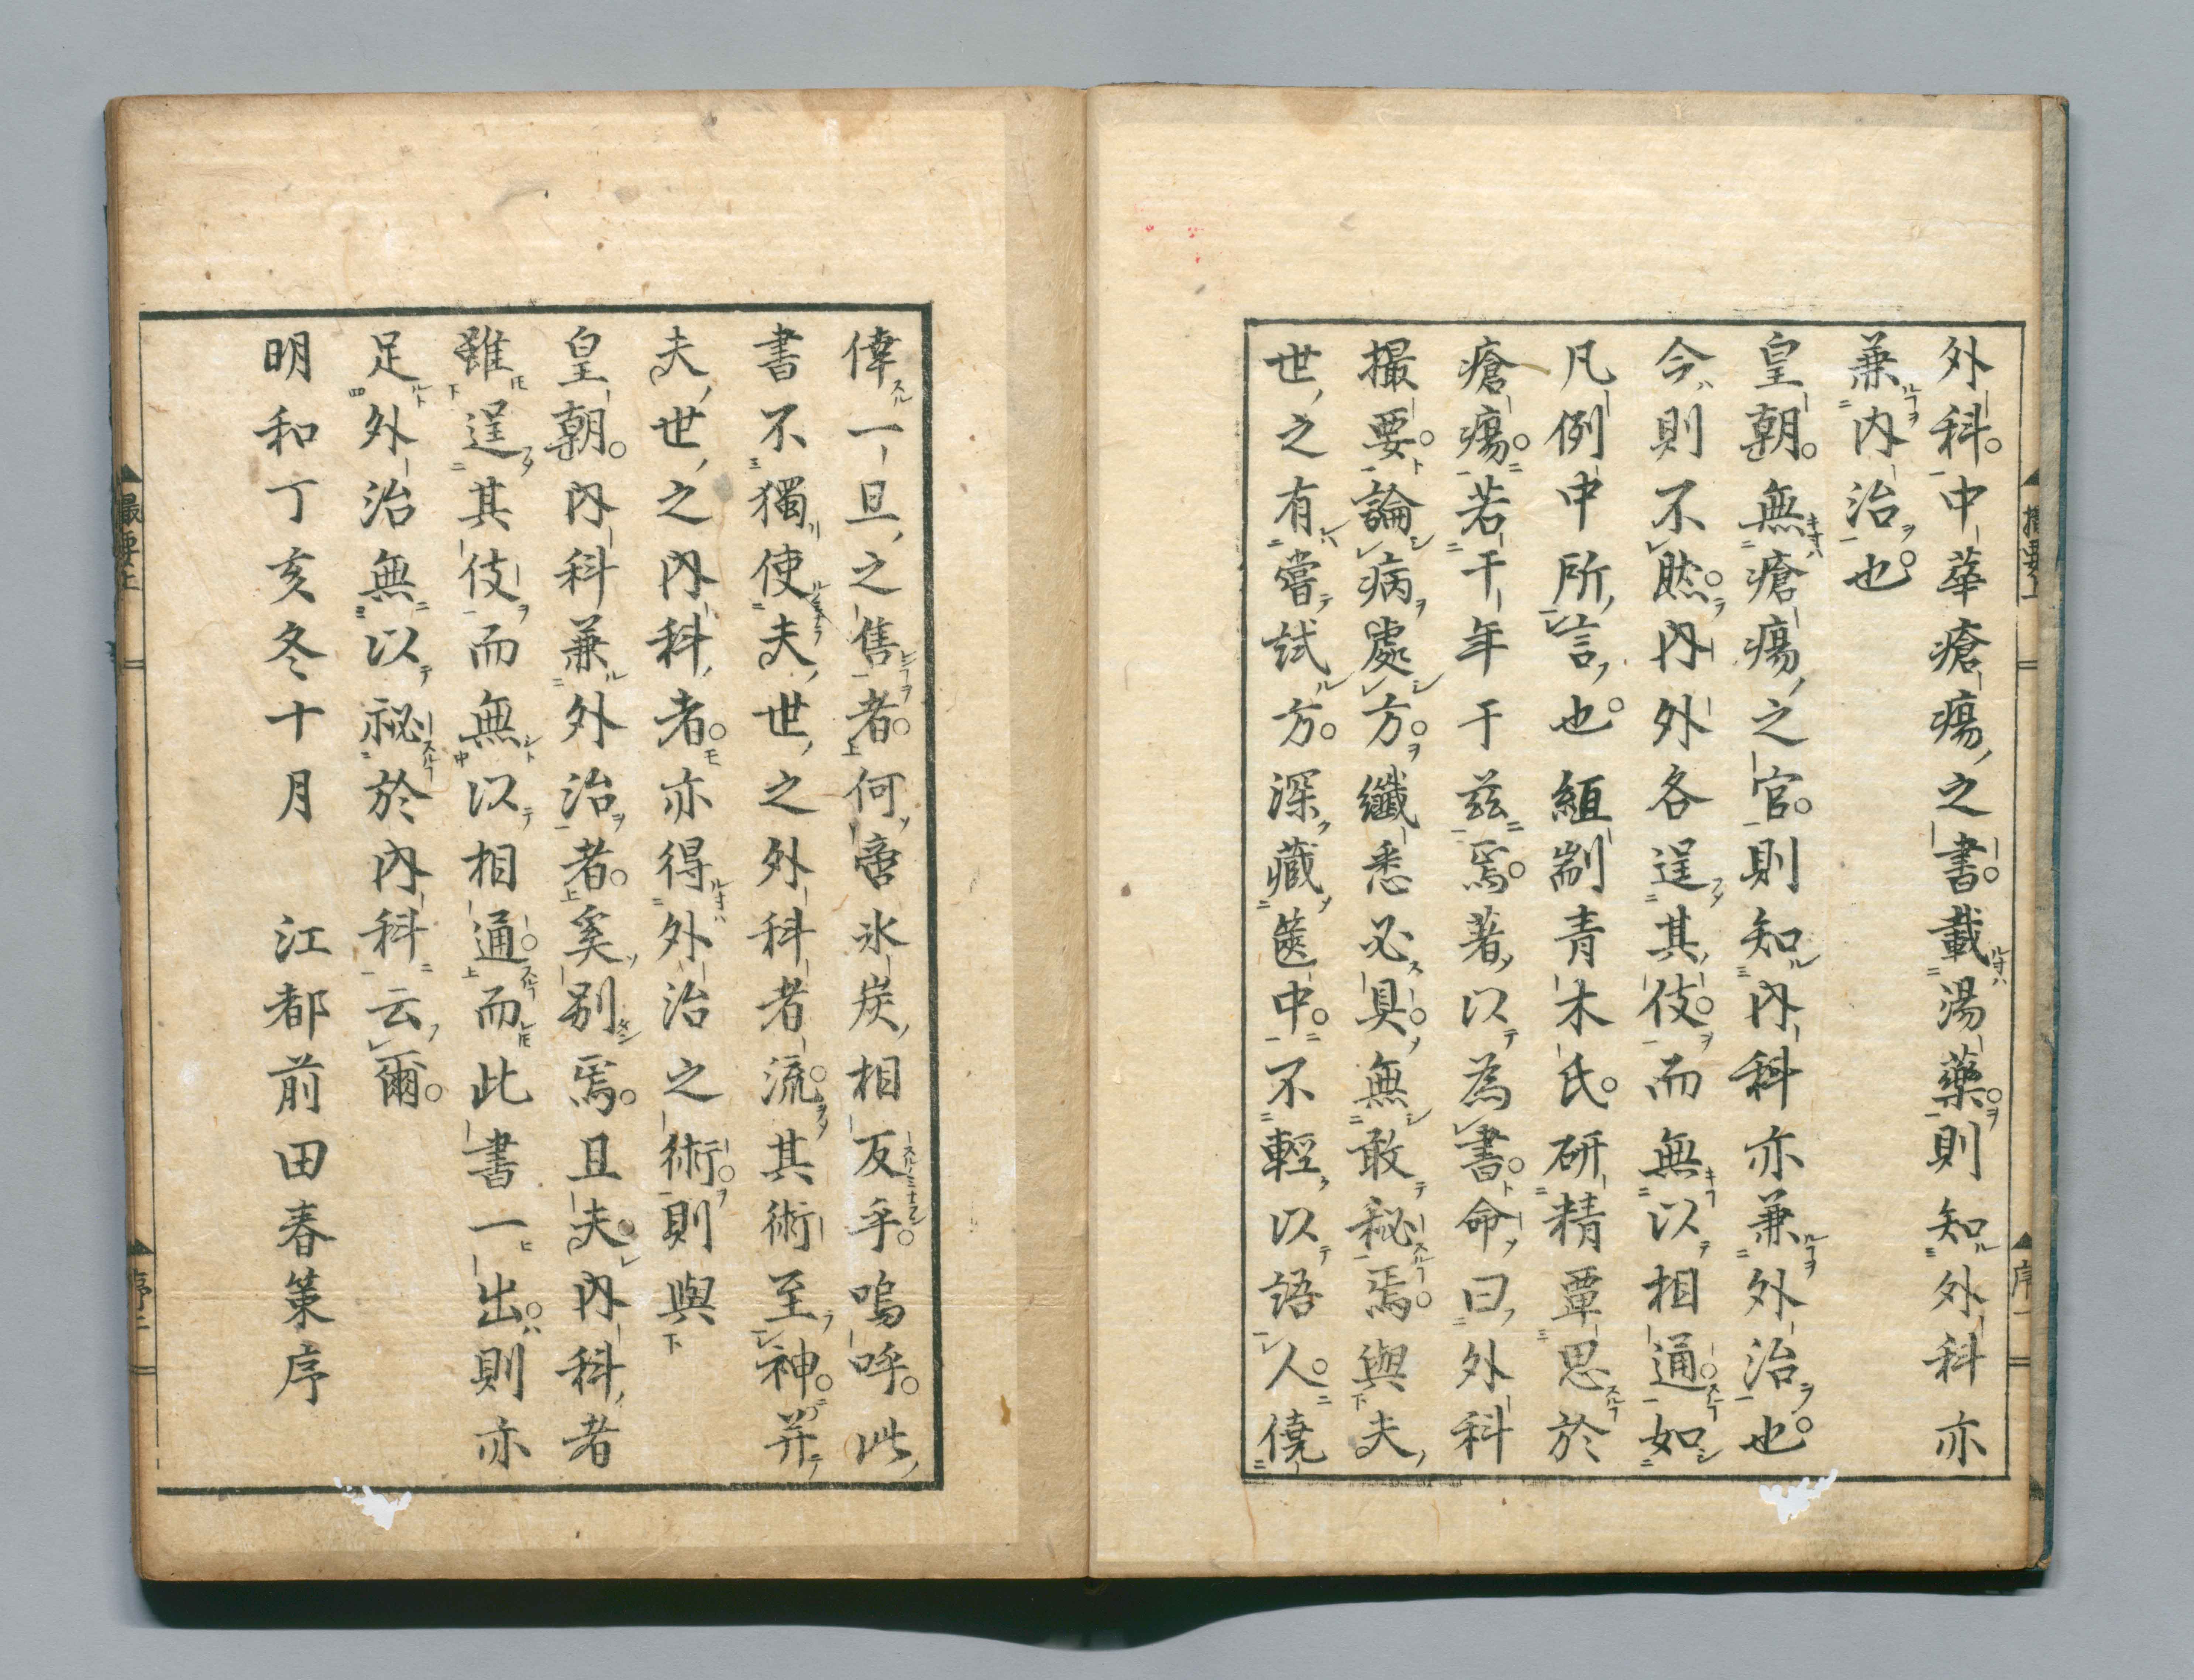 外科。中華瘡瘍之書。載湯藥。則知外科亦
兼內治。也
皇朝。無瘡瘍之官。則知內科亦兼外治。也
今則不然。內外各逞其伎。而無以相通。如
凡例中所言也。組剬青木氏。研精覃思於
瘡瘍。若干年于茲焉。著以為書。命曰外科
撮要。論病處方。纖悉必具。無敢秘焉。與夫
世之有嘗試方。深藏篋中。不輕以語人。僥
偉一旦之售者。何啻氷炭相反乎。嗚呼。此
書不獨使夫世之外科者流。其術至神。并
夫世之內科者。亦得外治之術。則與
皇朝。內科兼外治者。奚別焉。且夫。內科者
雖逞其伎而無以相通。而此書一出。則亦
足外治無以祕於內科云爾。
明和丁亥冬十月　江都前田春策序
撮要上
序一
撮要上
序二